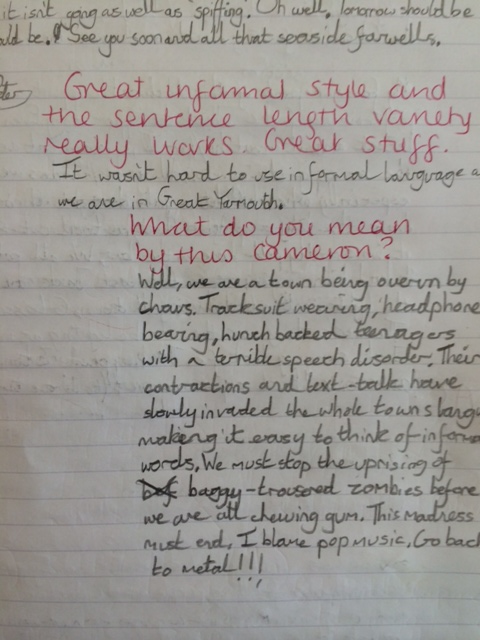 it isn't going as well as 'spiffing'. Oh well, tomorrow should be
ould be. See you soon and all that seaside farwells.
Great informal style and
the sentence length variety
really works. Great stuff.
It wasn't hard to use informal language a
we are in Great Yarmouth.
What do you mean
by this cameron?
Well, we are a town being overun by
chavs. Tracksuit wearing, headphone
bearing, hunch backed teenagers
with a terrible speech disorder. Their
contractions and text-talk have
slowly invaded the whole towns langu
makeing it easy to think of informa
words. We must stop the uprising of
baggy-trousered zombies before
we are all chewing gum. This madness
must end, I blame pop music. Go back
to metal!!!